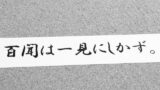 百聞は一見にしかず。